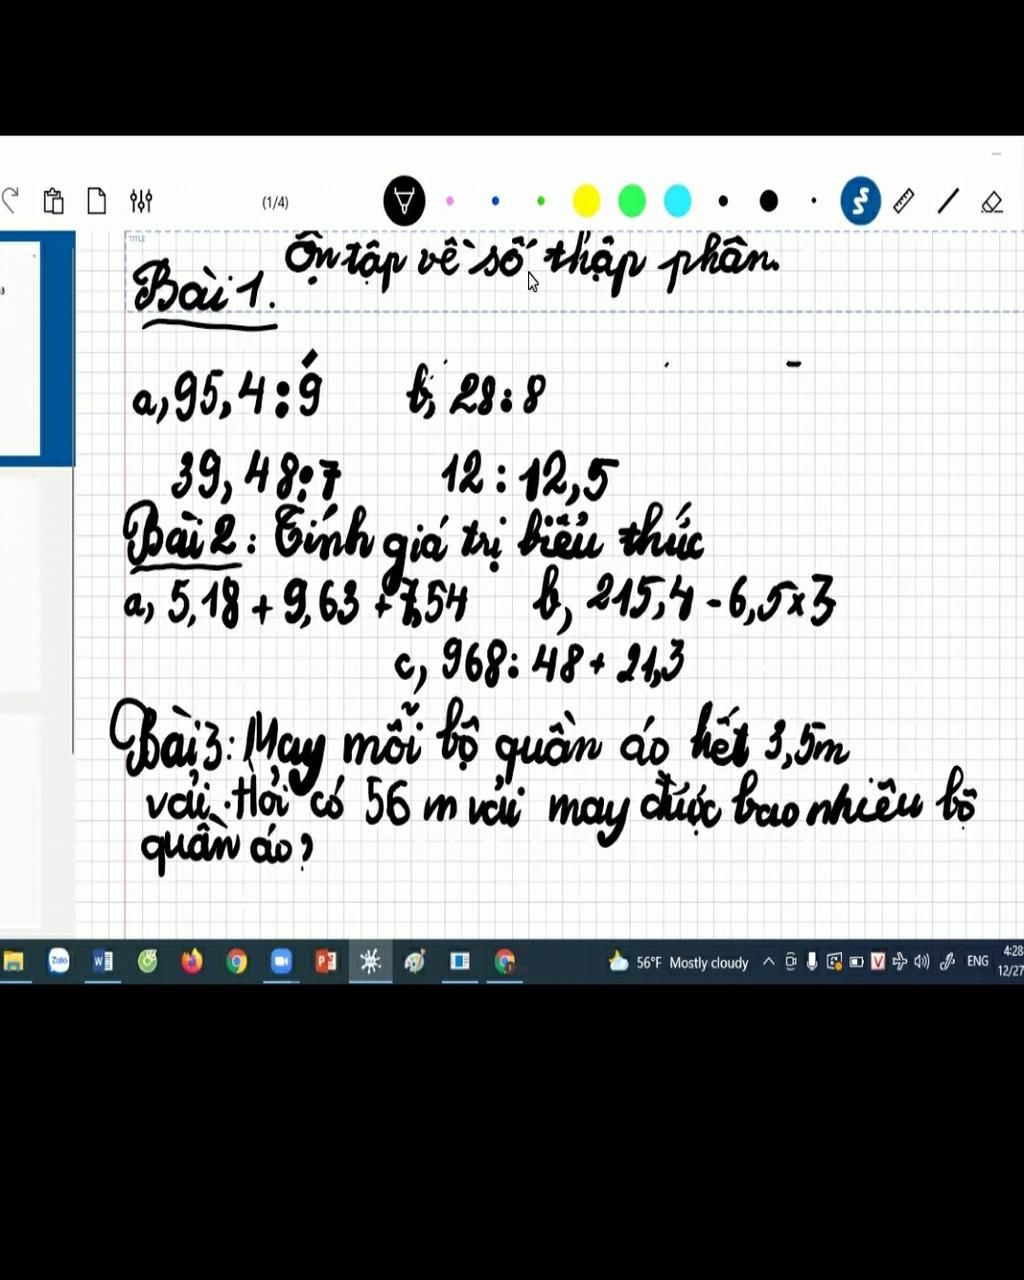 (1/4)
TITLE
Ôn tập về số thập phân.
Bài 1.
a, 95,4 : 9 b, 28 : 8
39,48 : 7 12 : 12,5
Bài 2 : Tính giá trị biểu thức
a, 5,18 + 9,63 + 7,54 b, 215,4 - 6,5 x 3
c, 968 : 48 + 21,3
Bài 3 : May mỗi bộ quần áo hết 3,5m
vải. Hỏi có 56 m vải may được bao nhiêu bộ
quần áo?
Zalo 56°F Mostly cloudy ENG 4:28
12/27